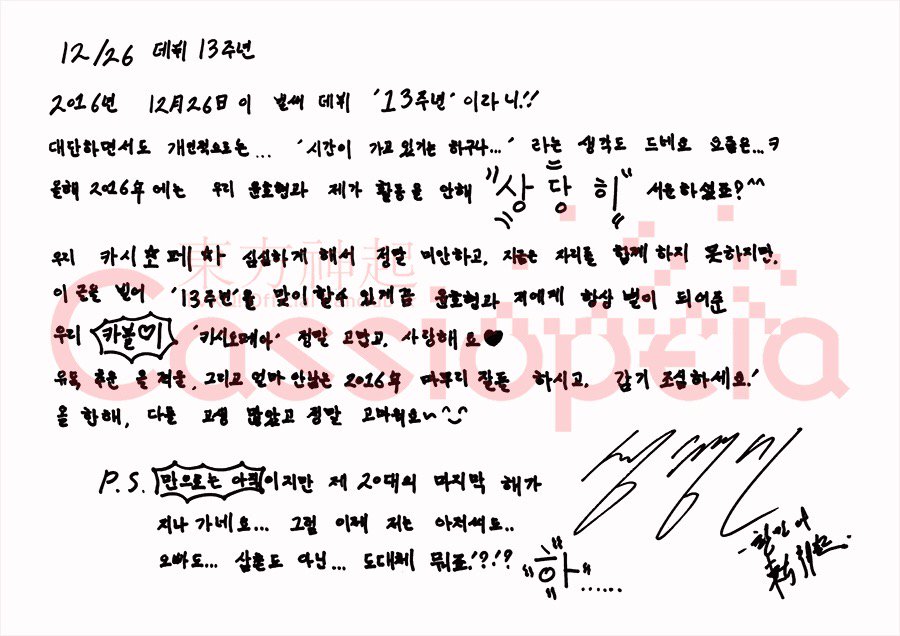 12/26 데뷔 13주년
2016년 12月26日이 벌써 데뷔 '13주년'이라니!!
대단하면서도 개인적으로는... '시간이 가고 있기는 하구나...' 라는 생각도 드네요 오늘은...ㅋ
올해 2016年에는 우리 윤호형과 제가 활동을 안해 "상당히" 서운하셨죠?^^
우리 카시오페아 심심하게 해서 정말 미안하고, 지금은 자리를 함께 하지 못하지만,
이 글을 빌어 '13주년'을 맞이 할수 있게끔 윤호형과 저에게 항상 별이 되어준
우리 카볼♡이 '카시오페아' 정말 고맙고, 사랑해요♥
유독 추운 올 겨울, 그리고 얼마 안남은 2016年 마무리 잘들 하시고, 감기 조심하세요!
올 한해, 다들 고생 많았고 정말 고마워요~^_^
P.S. 만으로는 아직이지만 제 20대의 마지막 해가
지나가네요... 그럼 이제 저는 아저씨요..
오빠도... 삼촌도 아닌... 도대체 뭐죠!?!? "하"......
東方神起
Cassiopeia